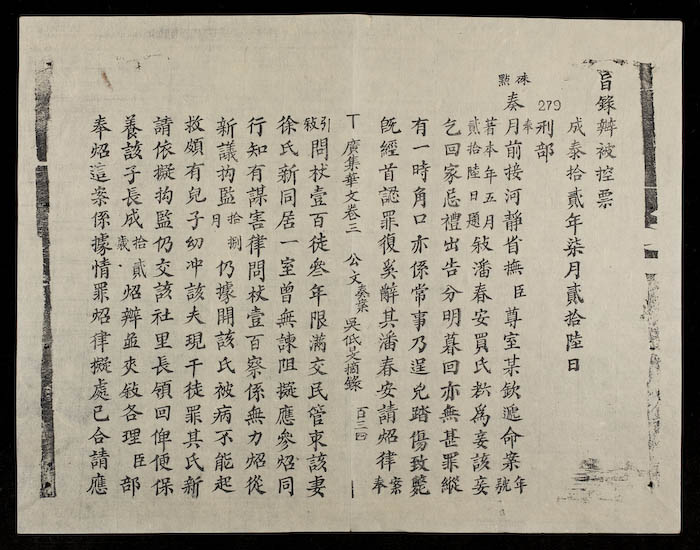 旨錄辦被控票
成泰拾貳年柒月貳拾陸日
279 刑部
硃點 奏
奉月前接河靜省撫臣尊室某欽遞命案年號
著本年五月貳拾陸日題敍潘春安買氏新為妾該妾
乞回家忌禮出告分明暮回亦無甚罪縱
有一時角口亦係常事乃逞兇踏傷致斃
既經首認罪復奚辭其潘春安請炤律案奉
廣集華文卷三 公文奏案 吳低旻摘錄 百三四
引敍問杖壹百徒叁年限滿交民管束該妻
徐氏新同居一室曾無諫阻擬應參炤同
行知有謀害律問杖壹百察係無力炤從
新議拘監拾捌月仍據開該氏被病不能起
救頗有兒子幼冲該夫現干徒罪其氏新
請依擬拘監仍交該社里長領回俾便保
養該子長成拾貳歲炤辦並夾敍各理臣部
奉炤這案係據情罪炤律擬處已合請應